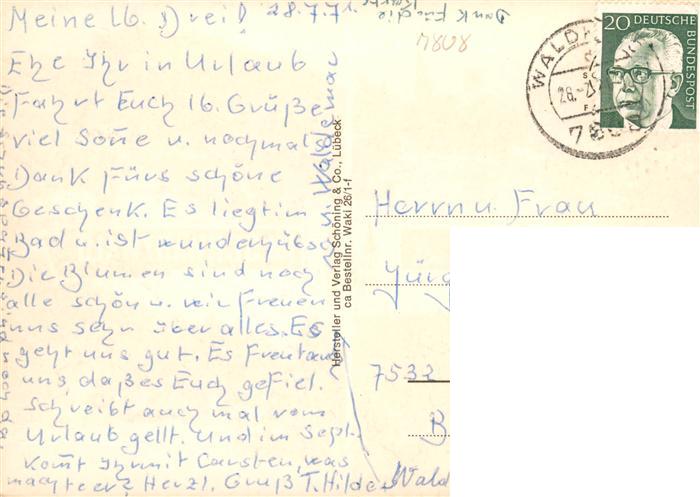 Meine lb. Drei! 28.7.71.
Dank für die
Karte
7808
Ehe Ihr in Urlaub
Fahrt Euch lb. Grüße
viel Soñe u. nochmals
Dank fürs schöne
Geschenk. Es liegt im
Bad u. ist wunderhübsch
Die Blumen sind noch
alle schön u. wir Freuen
uns sehr über alles. Es
geht uns gut. Es Freut auch
uns, daß es Euch geFiel.
Schreibt auch mal vom
Urlaub gellt. Und im Sept.
Komt Ihr mit Carsten, was
macht er? Herzl. Gruß T. Hilde
u. Waldemar
Hersteller und Verlag Schöning & Co., Lübeck
ca Bestellnr. Wakl 26/1-f
20 DEUTSCHE
BUNDESPOST
WALDK
28.
7808
Herrn u. Frau
Jürg
7532
B
Wald